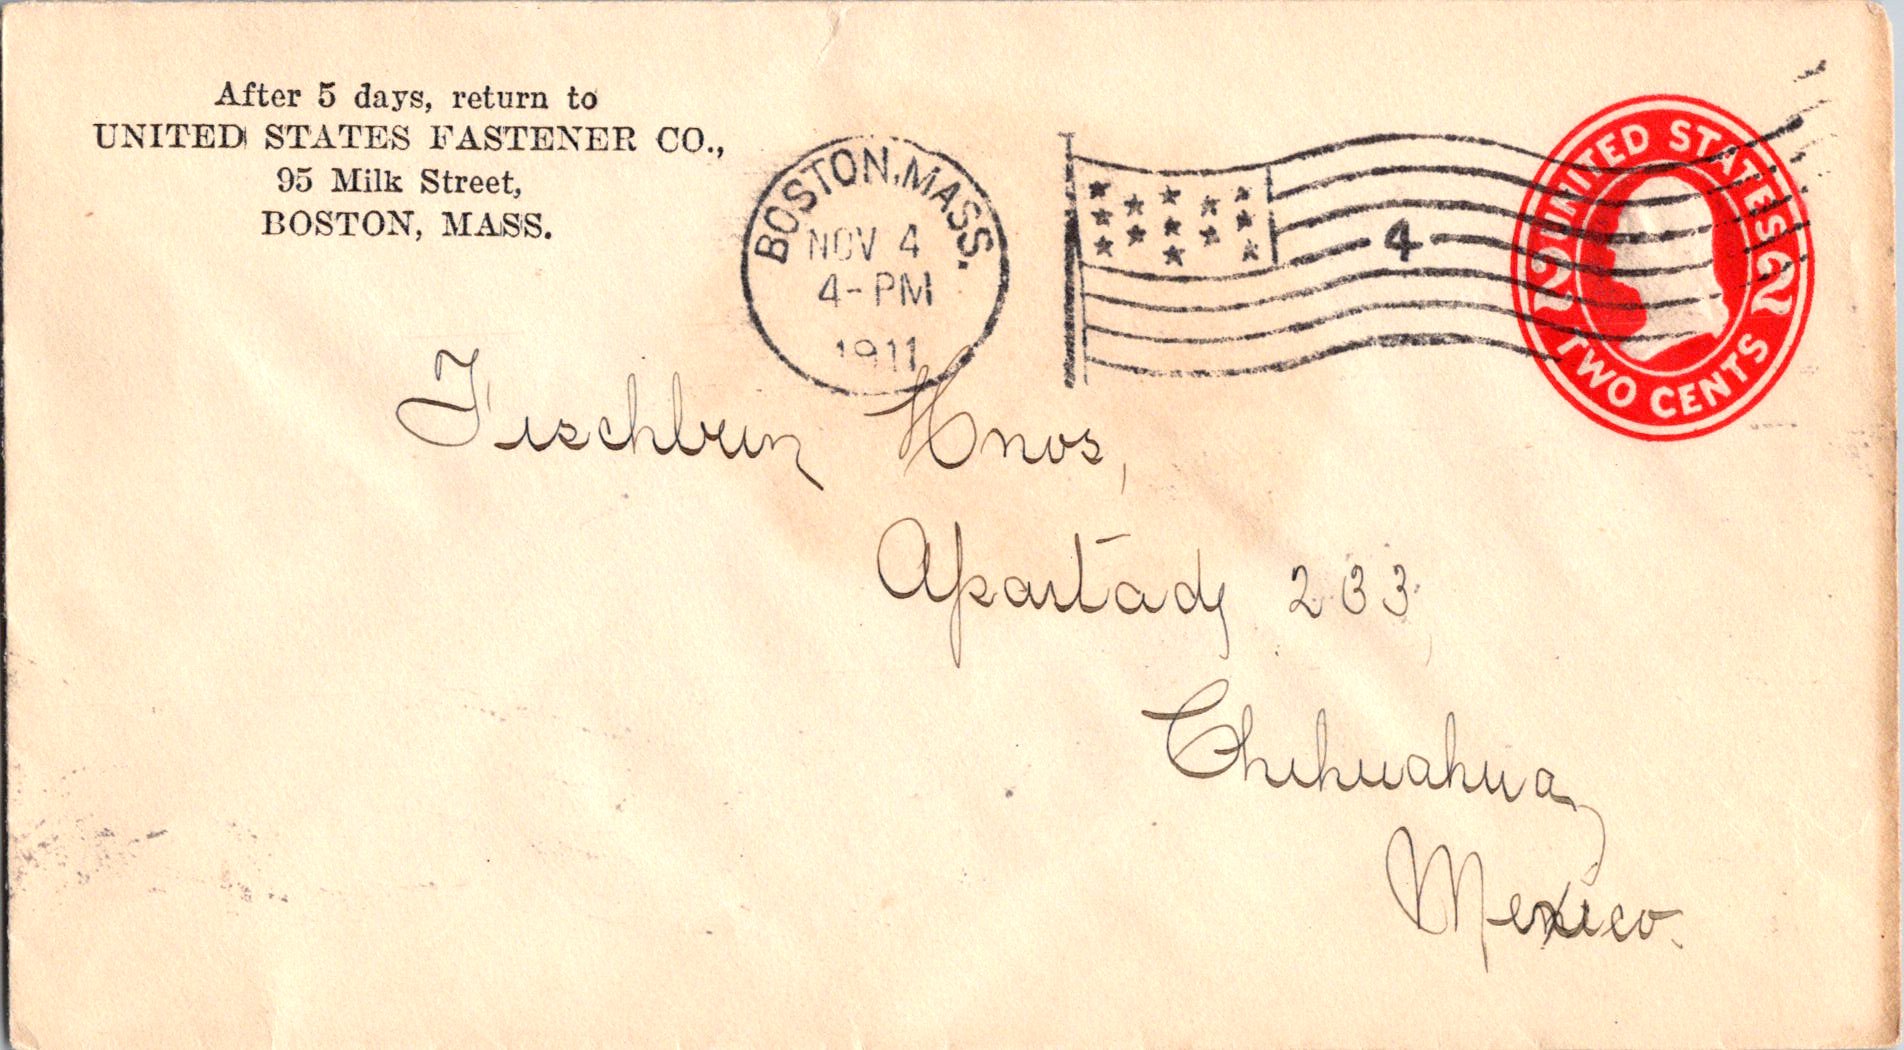 After 5 days, return to
UNITED STATES FASTENER CO.,
95 Milk Street,
BOSTON, MASS.
BOSTON, MASS.
NOV 4
4-PM
1911
4
UNITED STATES
2 2
TWO CENTS
Hnos,
Apartado 233
Chihuahua
Mexico.